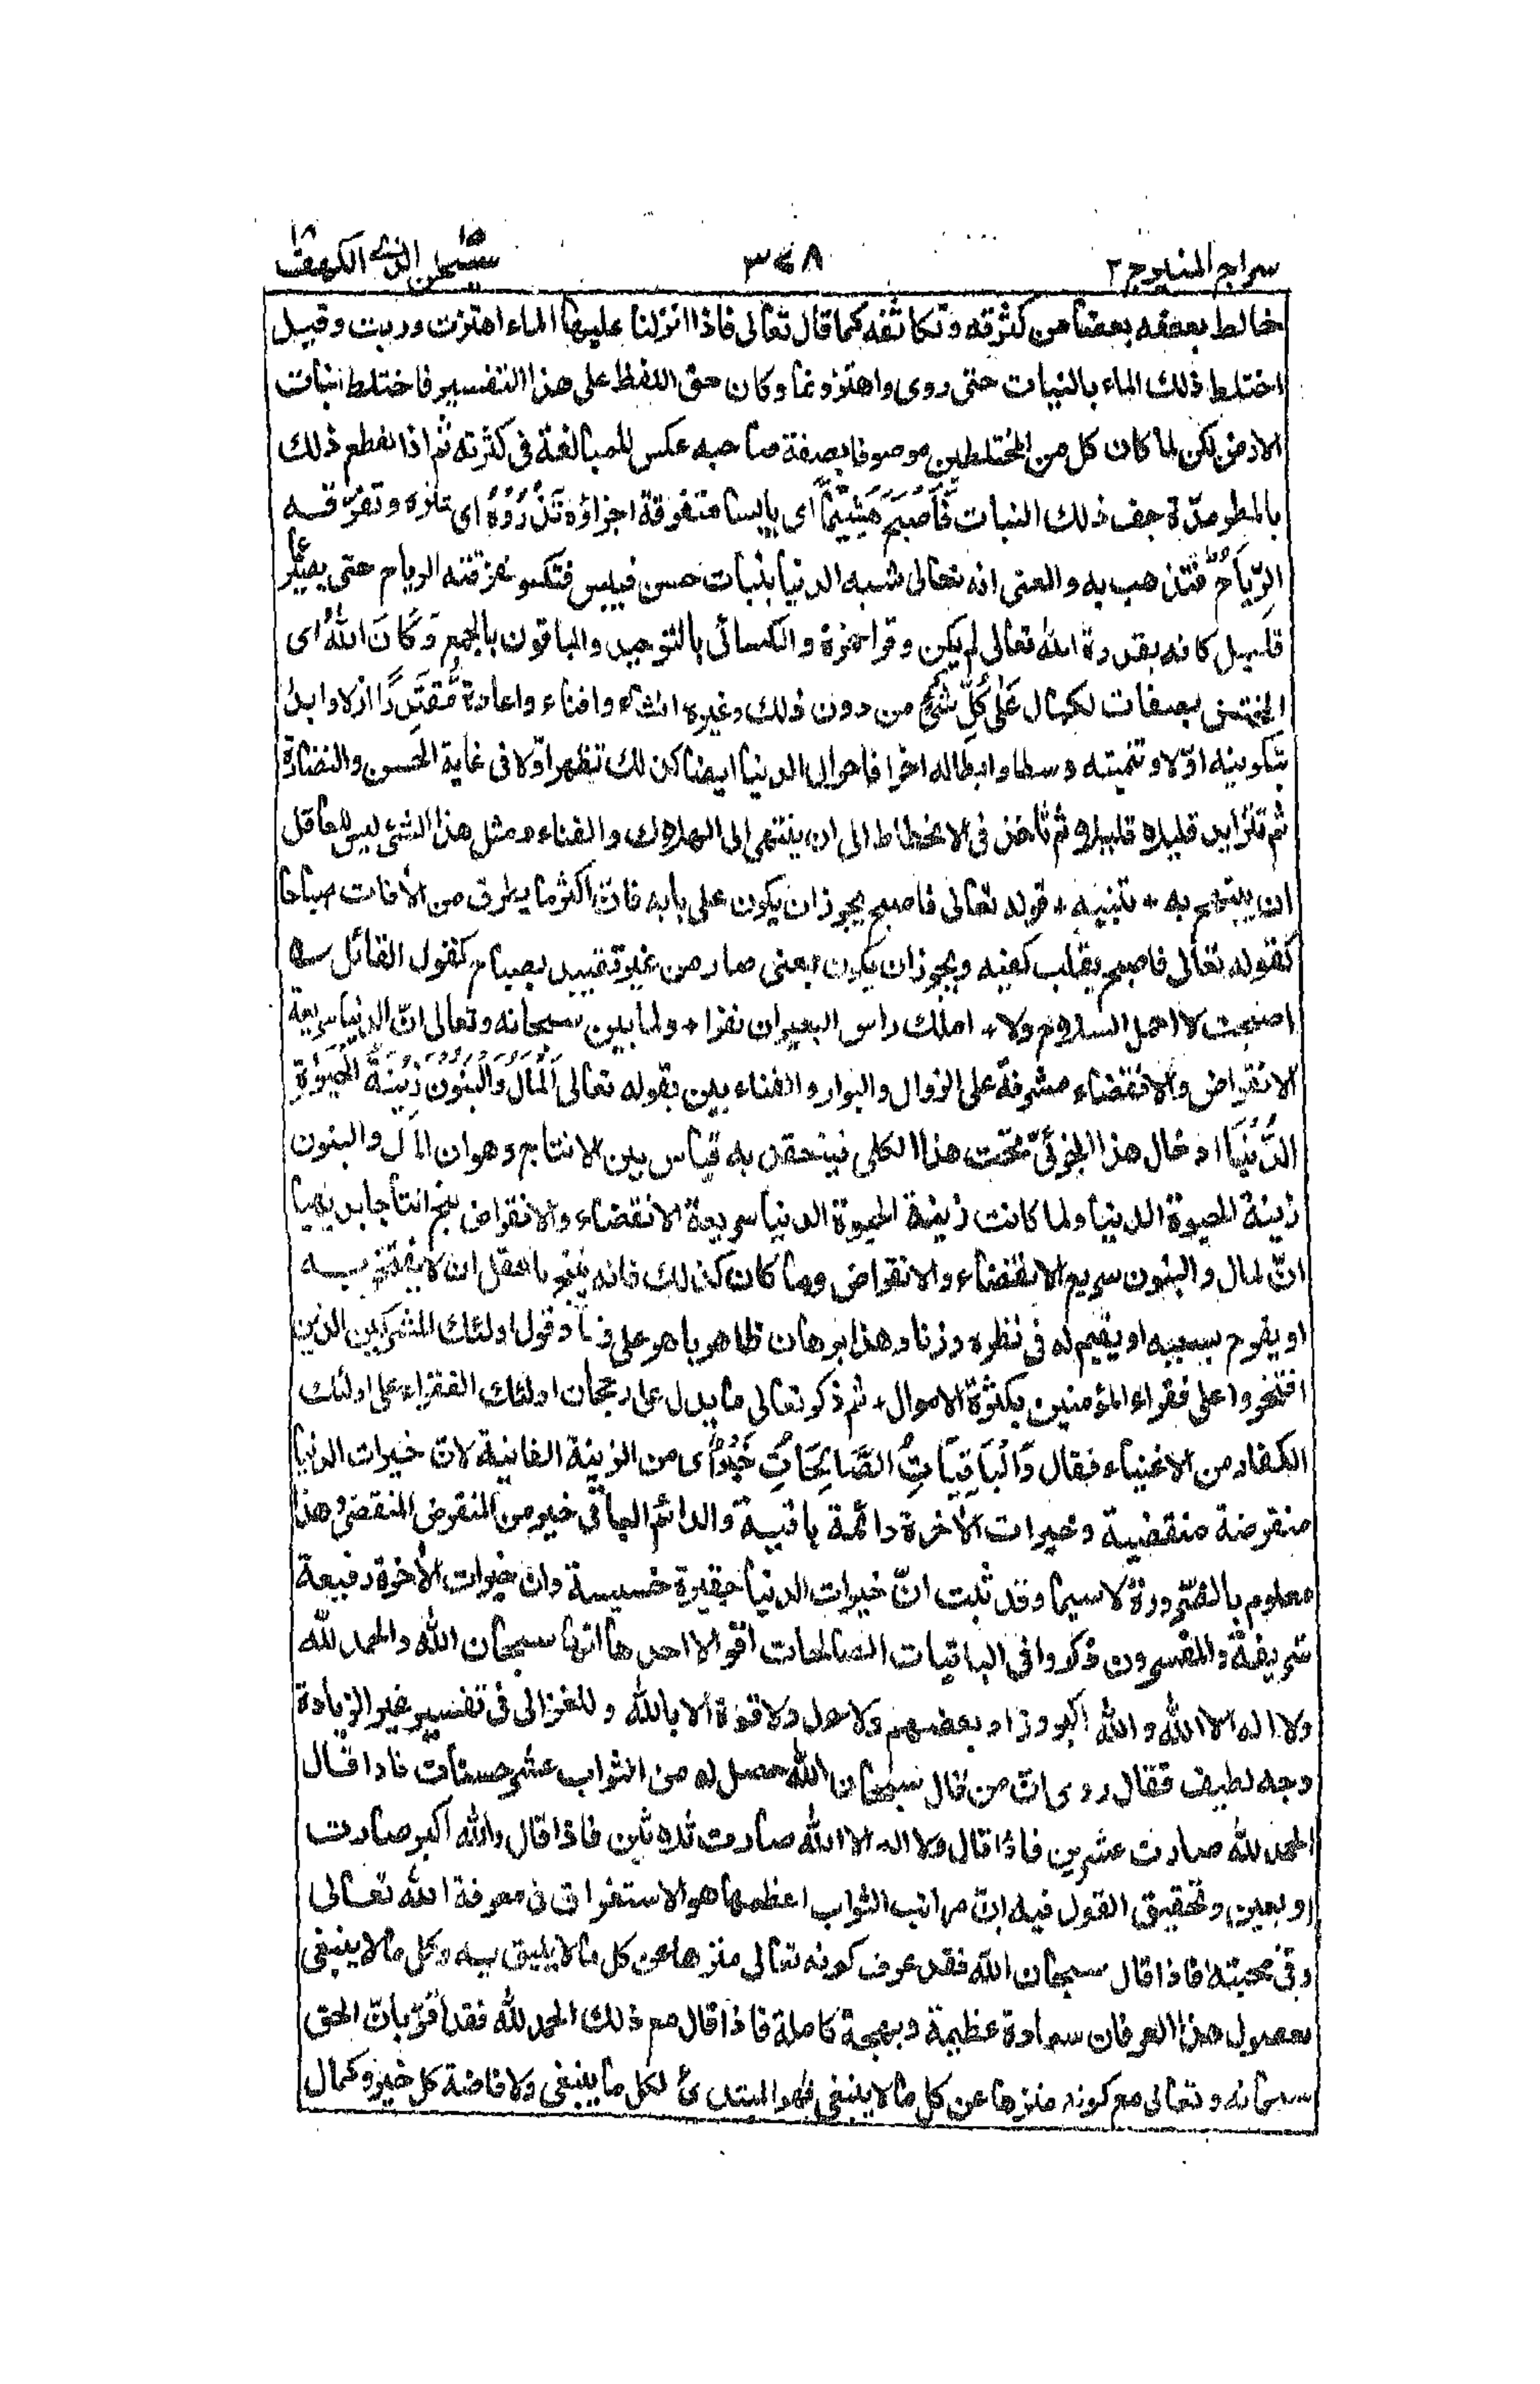 سراج المنير ج ٢ ٣٤٨ سبحن الذي ١٥ الكهف ١٨
خالط بعضه بعضا من كثرته وتكاثفه كما قال تعالى فاذا انزلنا عليها الماء اهتزت وربت وقيل
اختلط ذلك الماء بالنبات حتى روى واهتز ونما وكان حق اللفظ على هذا التفسير فاختلط بنبات
الارض لكن لما كان كل من المختلطين موصوفا بصفة صاحبه عكس للمبالغة فى كثرته ثم اذا انقطع ذلك
بالمطر مدّة جف ذلك النبات فَأَصْبَحَ هَشِيْمًا اى يابسا متفرقة اجزاؤه تَذْرُوْهُ اى تثره وتفرّقه
الرِّيَاحُ فتذهب به والمعنى انه تعالى شبه الدنيا بنبات حسن فيبس فتكسر ففرقته الرياح حتى يصير عما
قليل كانه بقدرة الله تعالى لم يكن وقرا حمزة والكسائى بالتوحيد والباقون بالجمع وَكَانَ اللهُ اى
المختص بصفات الكمال عَلٰى كُلِّ شَىْءٍ من دون ذلك وغيره انشاء وافناء واعادة مُّقْتَدِرًا ازلا وابدا
بتكوينه اوّلا وتنميته وسطا وابطاله اخرا فاحوال الدنيا ايضا كذلك تظهر اوّلا فى غاية الحسن والنضارة
ثم تتزايد قليلا قليلا ثم تأخذ فى الانحطاط الى ان ينتهى الى الهلاك والفناء ومثل هذا الشئ ليس للعاقل
ان يبتهج به + تنبيه + قوله تعالى فاصبح يجوز ان يكون على بابه فانّ اكثر ما يطرق من الأفات صباحا
كقوله تعالى فاصبح يقلب كفيه ويجوز ان يكون بمعنى صار من غير تقييد بصباح كقول القائل
اصبحت لا احمل السلاح ولا + املك راس البعير ان نفرا + ولما بين سبحانه وتعالى انّ الدنيا سريعة
الانقراض والانقضاء مشرفة على الزوال والبوار والفناء بين بقوله تعالى اَلْمَالُ وَالْبَنُوْنَ زِيْنَةُ الْحَيٰوةِ
الدُّنْيَا ادخال هذا الجزئىّ تحت هذا الكلى فينعقد به قياس بين الانتاج وهو ان المال والبنون
زينة الحيوة الدنيا ولما كانت زينة الحيوة الدنيا سريعة الانقضاء والانقراض ينتج انتاجا بديهيا
انّ المال والبنون سريع الانقضاء والانقراض وما كان كذلك فانه يقبح بالعقل ان لا يفتخر به
او يفرح بسببه او يقيم له فى نظره وزنا وهذا برهان ظاهر باهر على فساد قول اولئك المشركين الذين
افتخروا على فقراء المؤمنين بكثرة الاموال + ثم ذكر تعالى ما يدل على رجحان اولئك الفقراء على اولئك
الكفار من الاغنياء فقال وَالْبَاقِيَاتُ الصَّالِحَاتُ خَيْرٌ اى من الزينة الفانية لانّ خيرات الدنيا
منقرضة منقضية وخيرات الأخرة دائمة باقية والدائم الباقى خير من المنقرض المنقضى وهذا
معلوم بالضّرورة لاسيما وقد ثبت انّ خيرات الدنيا حقيرة خسيسة وان خيرات الأخرة رفيعة
شريفة والمفسرون ذكروا فى الباقيات الصالحات اقوالا احدها انها سبحان الله والحمد لله
ولا اله الا الله والله اكبر وزاد بعضهم ولا حول ولا قوة الا بالله وللغزالى فى تفسير غير الزيادة
وجه لطيف فقال روى ان من قال سبحان الله حصل له من الثواب عشر حسنات فاذا قال
الحمد لله صارت عشرين فاذا قال ولا اله الا الله صارت ثلاثين فاذا قال والله اكبر صارت
اربعين وتحقيق القول فيه انّ مراتب الثواب اعظمها هو الاستغراق فى معرفة الله تعالى
وفى محبته فاذا قال سبحان الله فقد عرف كونه تعالى منزها عن كل ما لا يليق به وكل ما لا ينبغى
حصول هذا العرفان سعادة عظيمة وبهجة كاملة فاذا قال مع ذلك الحمد لله فقد أقرّ بأنّ الحق
سبحانه وتعالى مع كونه منزها عن كل ما لا ينبغى فهو المبتدئ لكل ما ينبغى ولافاضة كل خير وكمال